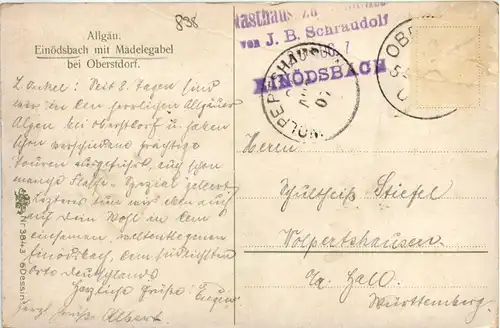 Allgäu.
Einödsbach mit Mädelegabel
bei Oberstdorf.
898
Gasthaus zu
von J. B. Schraudolf
EINÖDSBACH
WOLPERTSHAUSEN
07
OBE
L. Onkel! Seit 8 Tagen sind
wir in den herrlichen Allgäuer
Alpen bei Oberstdorf u. haben
schon verschiedene prächtige
Touren ausgeführt, auch schon
manche Flasche Spezial geleert.
Letzteres tun wir eben auf
auf Dein Wohl in dem
einsamen, weltentlegenen
Einödsbach, dem südlichsten
Orte Deutschlands
Herzliche Grüße! Eugen
Herzl. Grüße Albert
Nr 3843 6 Dessin
Herrn
Schultheiß Stiefel
Wolpertshausen
O/A. Hall.
Württemberg.